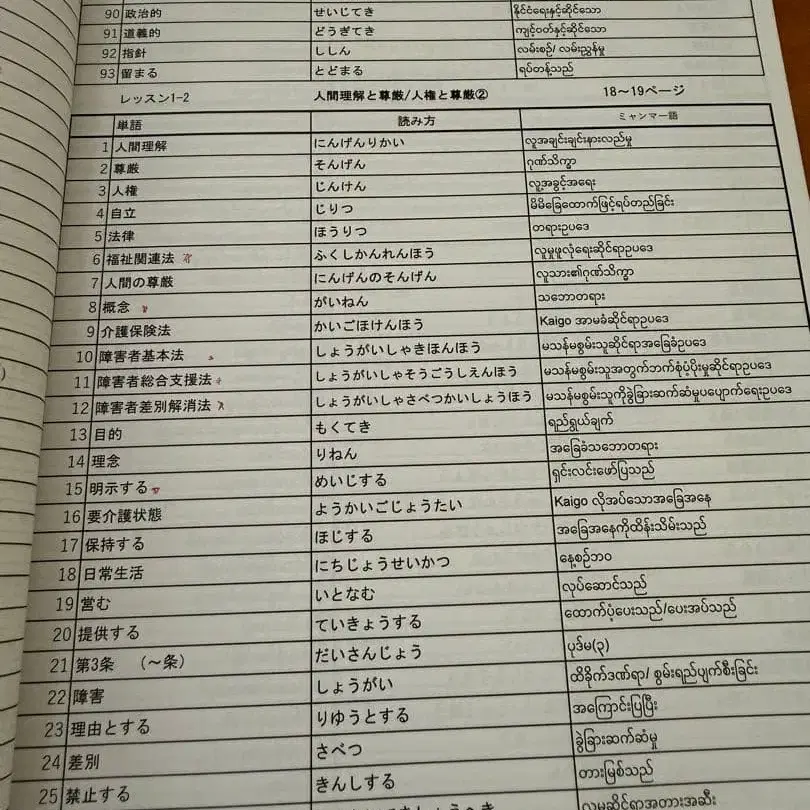 90 政治的 せいじてき နိုင်ငံရေးနှင့်ဆိုင်သော
91 道義的 どうぎてき ကျင့်ဝတ်နှင့်ဆိုင်သော
92 指針 ししん လမ်းစဉ်/ လမ်းညွှန်မှု
93 留まる とどまる ရပ်တန့်သည်
レッスン1-2 人間理解と尊厳/人権と尊厳② 18～19ページ
単語 読み方 ミャンマー語
1 人間理解 にんげんりかい လူအချင်းချင်းနားလည်မှု
2 尊厳 そんげん ဂုဏ်သိက္ခာ
3 人権 じんけん လူ့အခွင့်အရေး
4 自立 じりつ မိမိခြေထောက်ဖြင့်ရပ်တည်ခြင်း
5 法律 ほうりつ တရားဥပဒေ
6 福祉関連法 ふくしかんれんほう လူမှုဖူလုံရေးဆိုင်ရာဥပဒေ
7 人間の尊厳 にんげんのそんげん လူသား၏ဂုဏ်သိက္ခာ
8 概念 がいねん သဘောတရား
9 介護保険法 かいごほけんほう Kaigo အာမခံဆိုင်ရာဥပဒေ
10 障害者基本法 しょうがいしゃきほんほう မသန်မစွမ်းသူဆိုင်ရာအခြေခံဥပဒေ
11 障害者総合支援法 しょうがいしゃそうごうしえんほう မသန်မစွမ်းသူအတွက်ဘက်စုံပံ့ပိုးမှုဆိုင်ရာဥပဒေ
12 障害者差別解消法 しょうがいしゃさべつかいしょうほう မသန်မစွမ်းသူကိုခွဲခြားဆက်ဆံမှုပပျောက်ရေးဥပဒေ
13 目的 もくてき ရည်ရွယ်ချက်
14 理念 りねん အခြေခံသဘောတရား
15 明示する めいじする ရှင်းလင်းဖော်ပြသည်
16 要介護状態 ようかいごじょうたい Kaigo လိုအပ်သောအခြေအနေ
17 保持する ほじする အခြေအနေကိုထိန်းသိမ်းသည်
18 日常生活 にちじょうせいかつ နေ့စဉ်ဘဝ
19 営む いとなむ လုပ်ဆောင်သည်
20 提供する ていきょうする ထောက်ပံ့ပေးသည်/ပေးအပ်သည်
21 第3条 （～条） だいさんじょう ပုဒ်မ(၃)
22 障害 しょうがい ထိခိုက်ဒဏ်ရာ/ စွမ်းရည်ပျက်စီးခြင်း
23 理由とする りゆうとする အကြောင်းပြပြီး
24 差別 さべつ ခွဲခြားဆက်ဆံမှု
25 禁止する きんしする တားမြစ်သည်